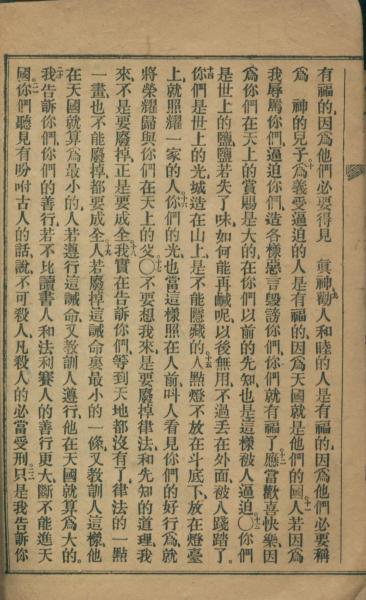 有福的因爲他們必要得見 眞神勸人和睦的人是有福的因爲他們必要稱
爲 神的兒子爲義受逼迫的人是有福的因爲天國就是他們的國人若因爲
我辱罵你們逼迫你們造各樣惡言毀謗你們你們就有福了應當歡喜快樂因
爲你們在天上的賞賜是大的在你們以前的先知也是這樣被人逼迫〇你們
是世上的鹽鹽若失了味如何能再鹹呢以後無用不過丟在外面被人踐踏了
你們是世上的光城造在山上是不能隱藏的人點燈不放在斗底下放在燈臺
上就照耀一家的人你們的光也當這樣照在人前叫人看見你們的好行爲就
將榮耀歸與你們在天上的父〇不要想我來是要廢掉律法和先知的道理我
來不是要廢掉正是要成全我實在告訴你們等到天地都沒有了律法的一點
一畫也不能廢掉都要成全人若廢掉這誡命裏最小的一條又教訓人這樣他
在天國就算爲最小的人若遵行這誡命又教訓人遵行他在天國就算爲大的
我告訴你們你們的善行若不比讀書人和法利賽人的善行更大斷不能進天
國你們聽見有吩咐古人的話說不可殺人凡殺人的必當受刑只是我告訴你